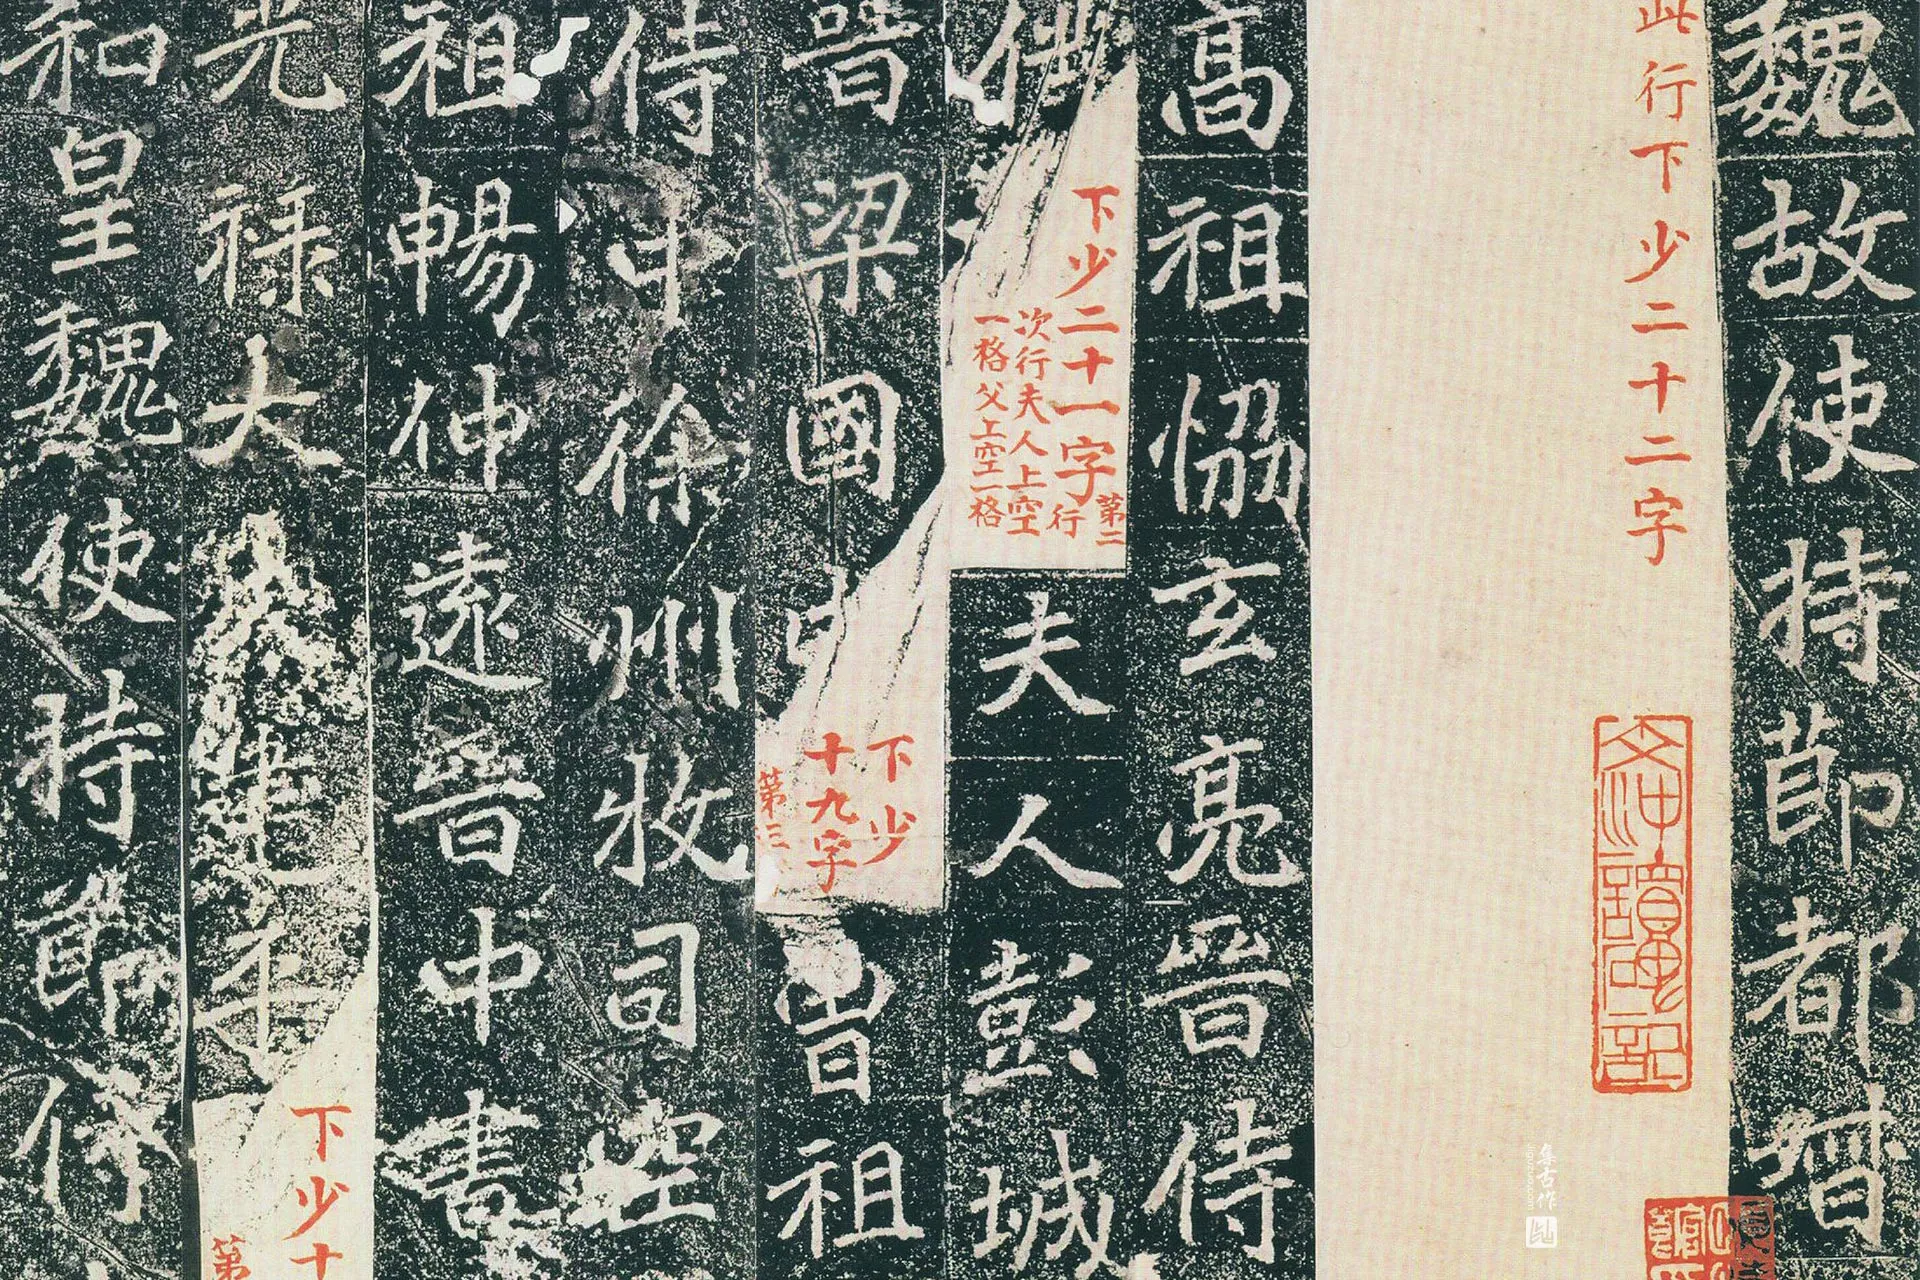 魏故使持節都督
此行下少二十二字
高祖恊玄亮晋侍
下少二十一字
第二行
次行夫人上空
一格父上空一格
夫人彭城
晉梁國
下少
十九字
第三
曾祖
侍中徐州牧司空
祖暢仲遠晉中書
光祿大夫建
下少十
第
和皇魏使持節侍
集古作